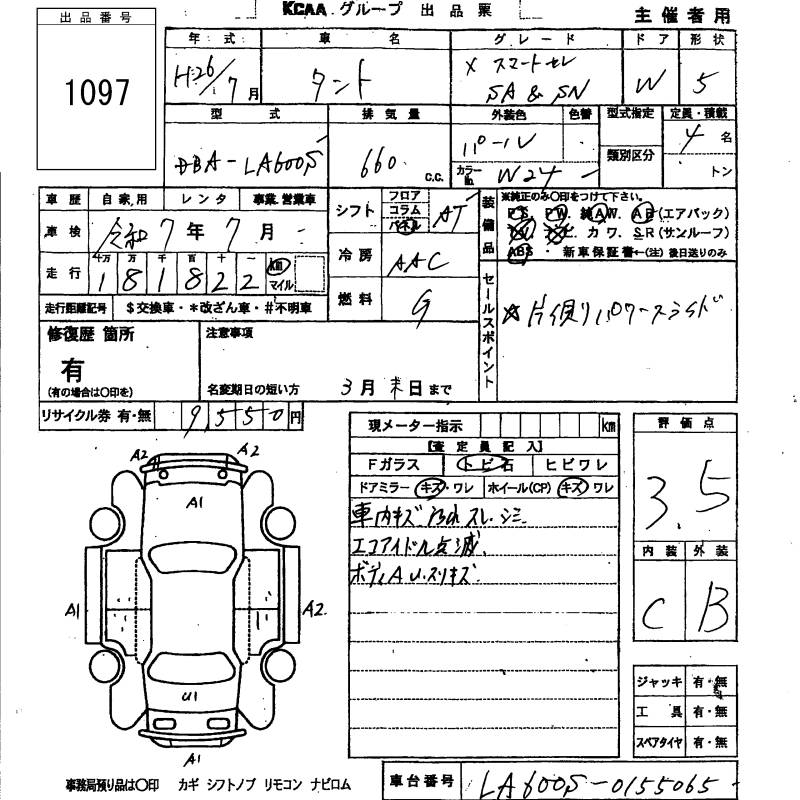 KCAA グループ 出品票
主催者用
出品番号
1097
年式 車名 グレード ドア 形状
H26/7月 タント X スマートセレ SA & SN W 5
型式 排気量 外装色 色替 型式指定 定員・積載
DBA-LA600S 660 c.c. パール 類別区分 4名
カラーNo. W24 トン
車歴 自家用 レンタ 事業.営業車
車検 令和7年7月
走行 十万 万 千 百 十 一
1 8 1 8 2 2 km マイル
走行距離記号 $交換車・*改ざん車・#不明車
シフト フロア コラム パネル AT
冷房 AAC
燃料 G
装備品 ※純正のみ〇印をつけて下さい。
PS. PW. 純AW. AB(エアバック)
カワ. SR(サンルーフ)
ABS・新車保証書←(注)後日送りのみ
セールスポイント
☆片側パワースライド
修復歴 箇所
有
(有の場合は〇印を)
注意事項
名変期日の短い方 3月末日まで
リサイクル券 有・無 9,550円
現メーター指示 km
【査定員記入】
Fガラス トビ石 ヒビワレ
ドアミラー キズ・ワレ ホイール(CP) キズ・ワレ
車内キズ スレ.シミ
エコアイドル点滅.
ボディA.U.スリキズ
評価点
3.5
内装 外装
C B
A2 A2
A1
A1 A2
U1
A1
ジャッキ 有・無
工具 有・無
スペアタイヤ 有・無
事務局預り品は〇印 カギ シフトノブ リモコン ナビロム
車台番号 LA600S-0155065